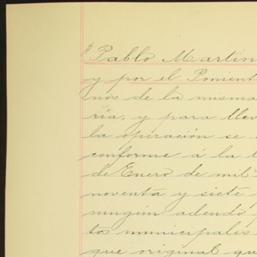 Pablo Martin
y por el Ponient
nos de la misma
ría, y para llev
la operación se
conforme á la l
de Enero de mil
noventa y siete
ningún adendó
to municipales
que original qu